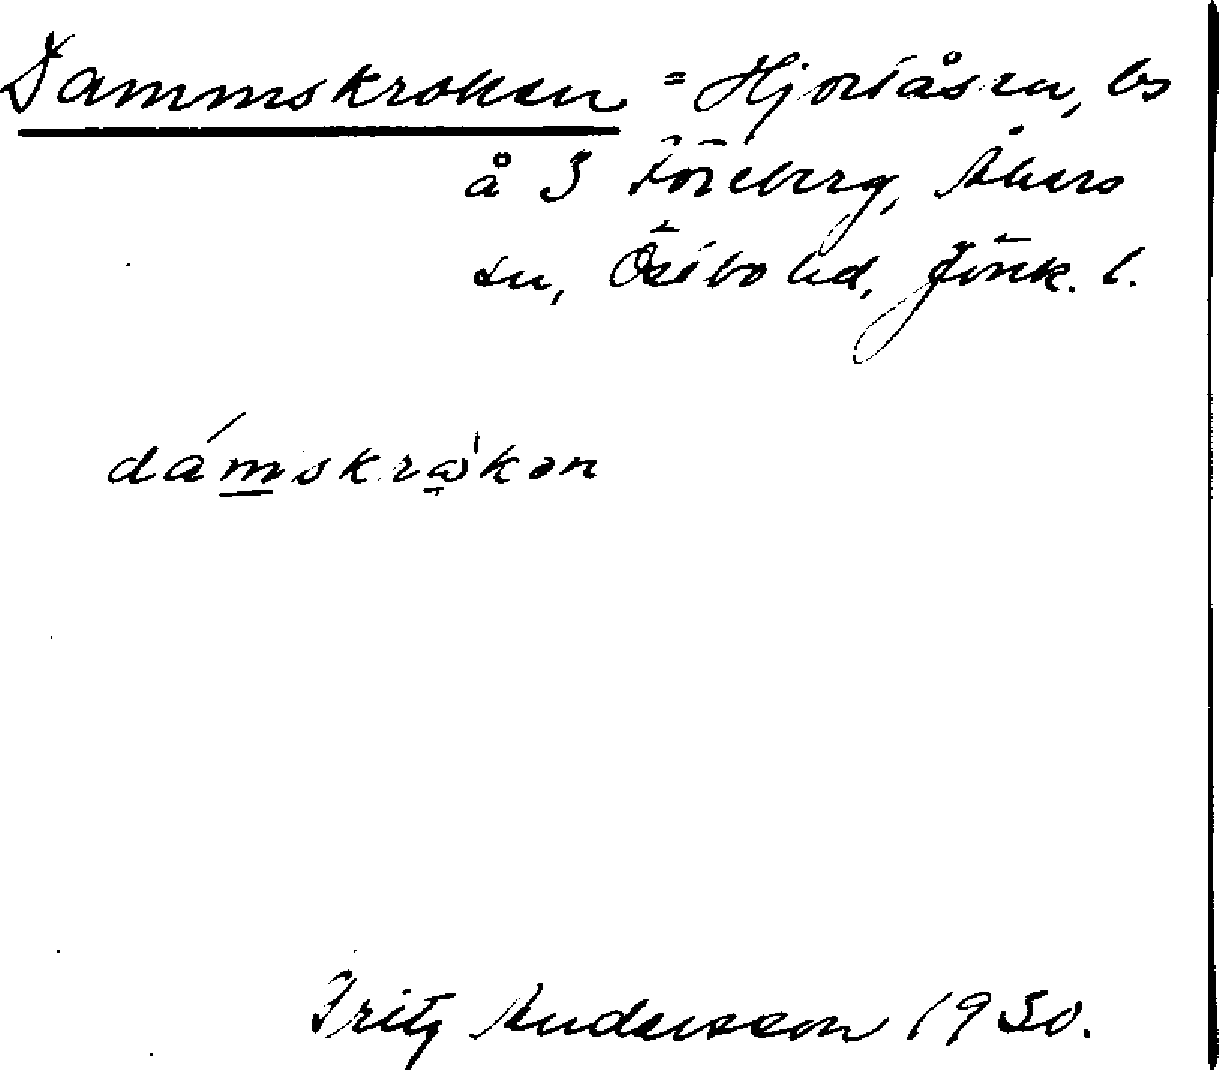 Dammskroken = Hjortåsen, bs
å S Föreberg, Åkers
sn, Östbo hd, Jönk. l.
dámskrωkən
Fritz Andersson 1930.